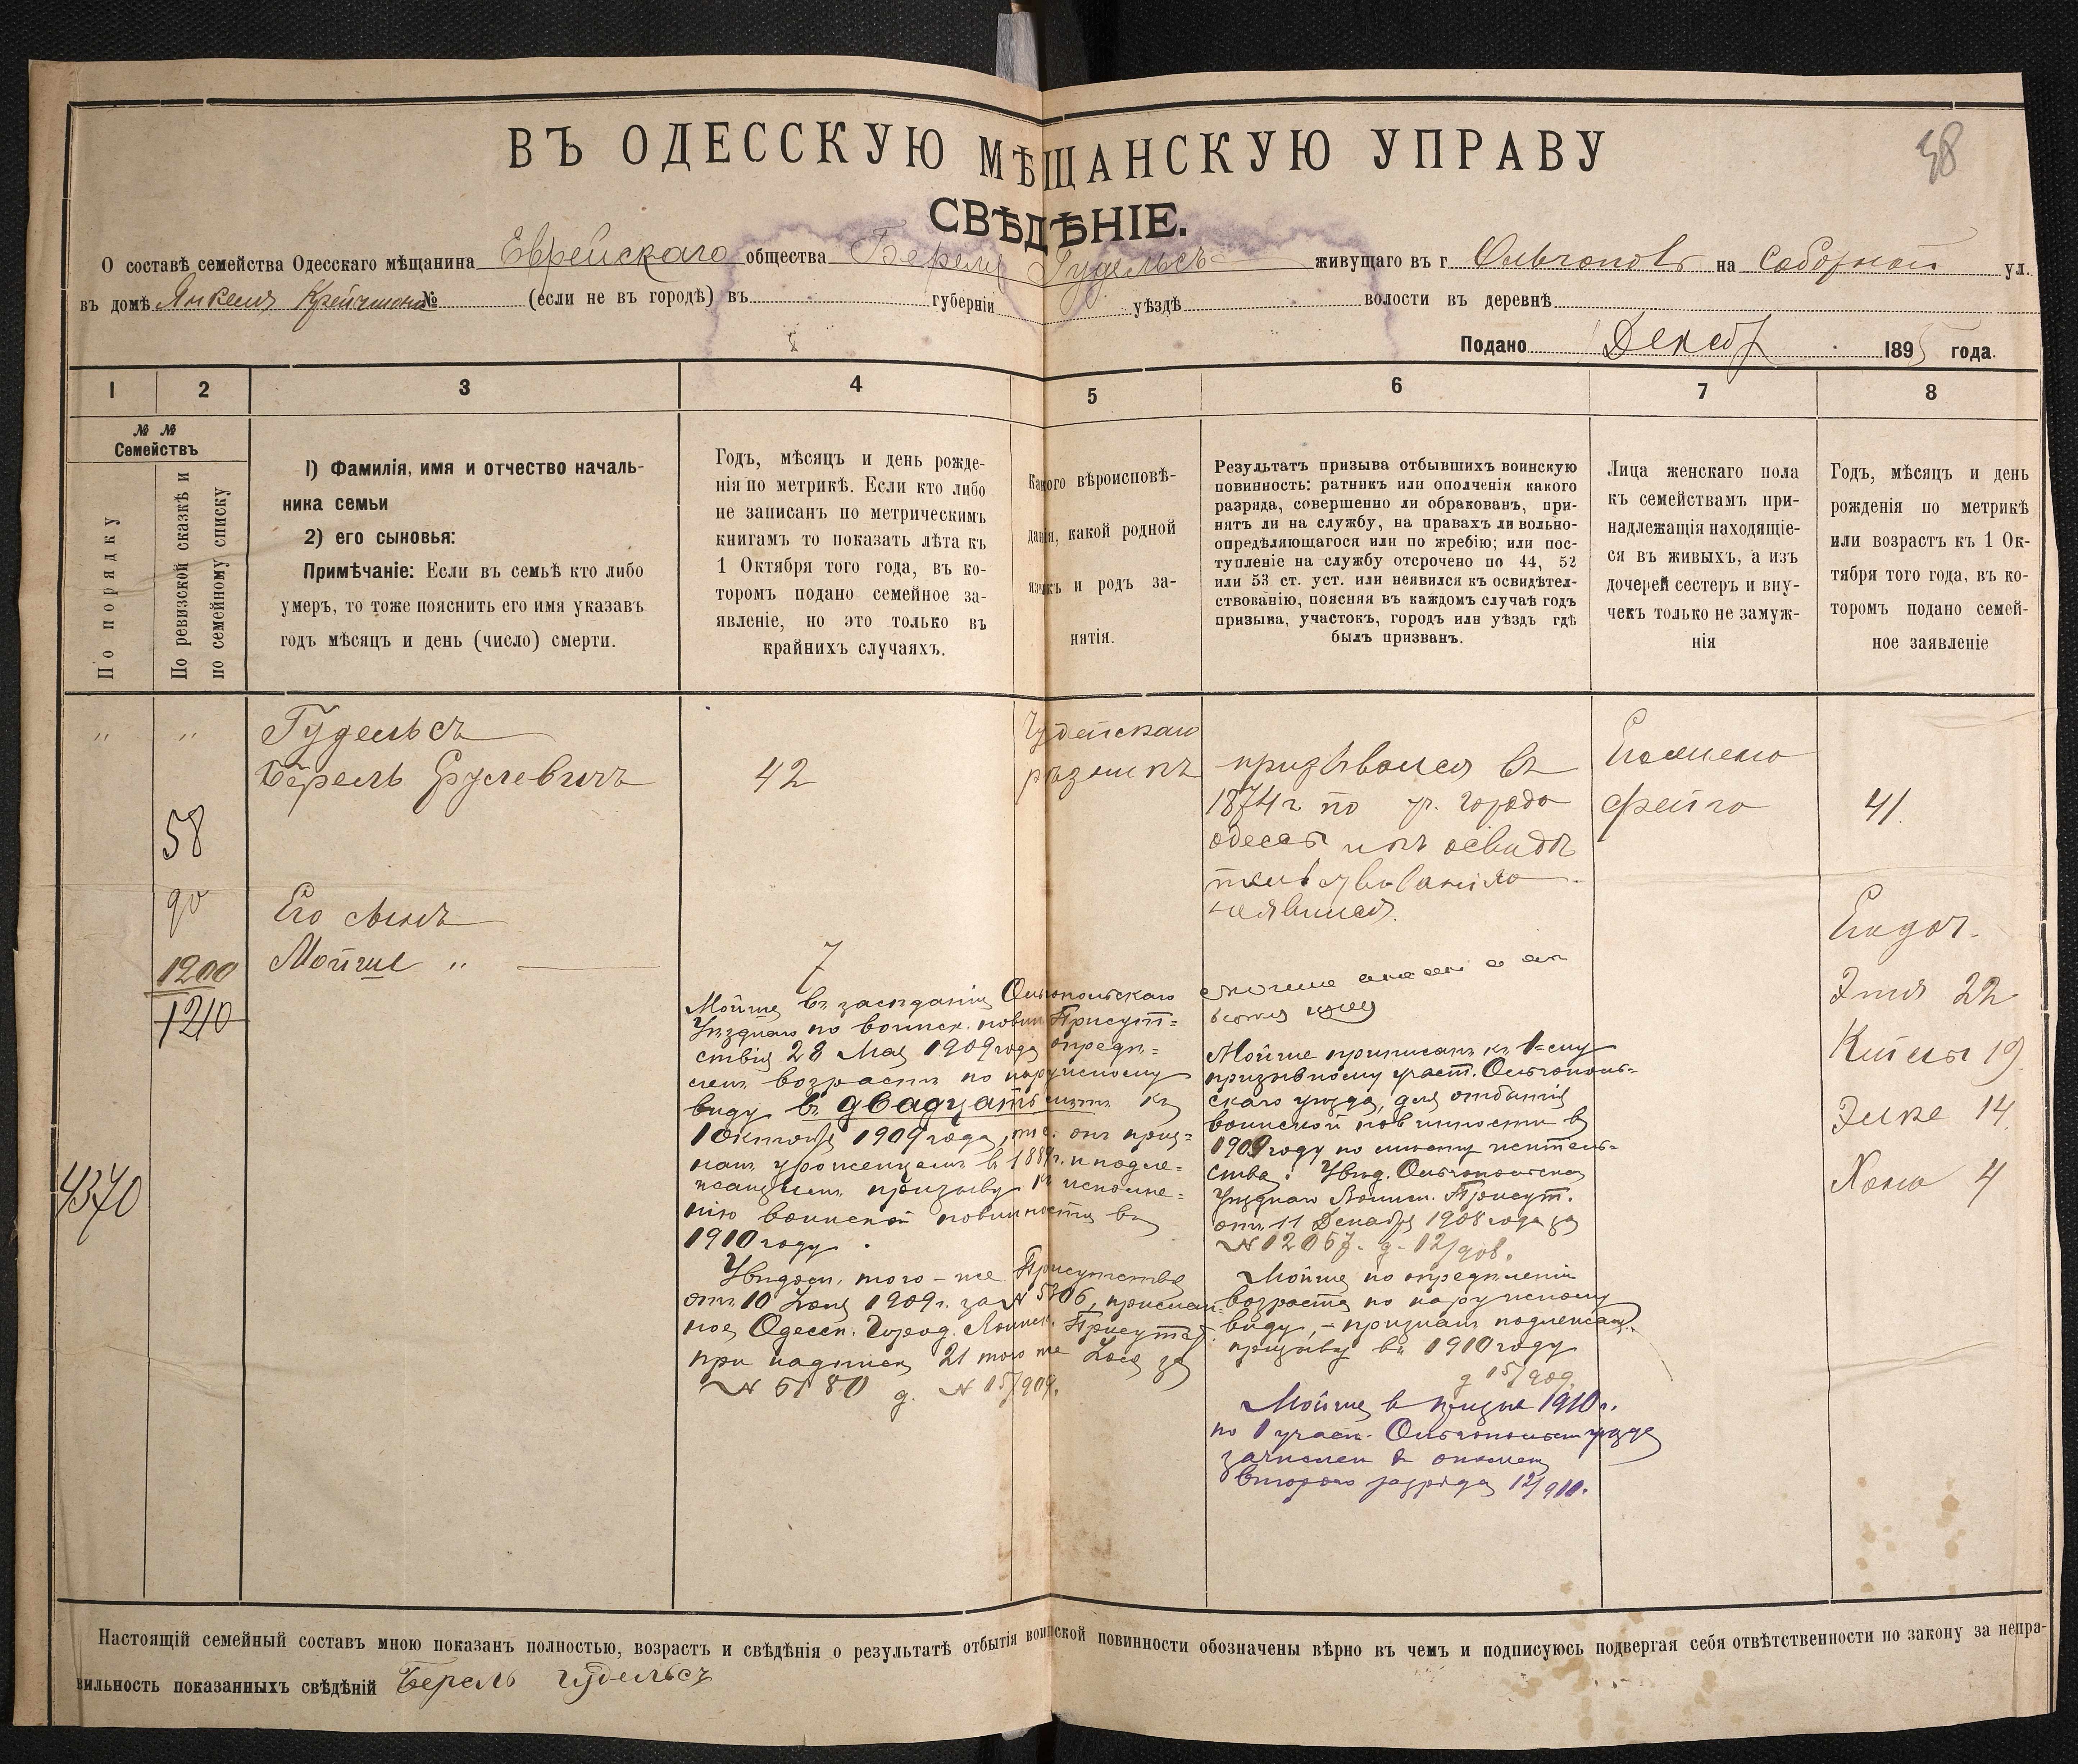 38
ВЪ ОДЕССКУЮ МѢЩАНСКУЮ УПРАВУ
СВѢДѢНІЕ.
О составѣ семейства Одесскаго мѣщанина Еврейскаго общества Береля Гудельсъ живущаго въ г. Ольгополь на Соборной ул.
въ домѣ Янкеля № (если не въ городѣ) въ губерніи уѣздѣ волости въ деревнѣ
Подано Декаб 1895 года.
1 2 3 4 5 6 7 8
№ № Семействъ
По порядку
По ревизской сказкѣ и
по семейному списку
1) Фамилія, имя и отчество началь-
ника семьи
2) его сыновья:
Примѣчаніе: Если въ семьѣ кто либо
умеръ, то тоже пояснить его имя указавъ
годъ мѣсяцъ и день (число) смерти.
Годъ, мѣсяцъ и день рожде-
нія по метрикѣ. Если кто либо
не записанъ по метрическимъ
книгамъ то показать лѣта къ
1 Октября того года, въ ко-
торомъ подано семейное за-
явленіе, но это только въ
крайнихъ случаяхъ.
Какого вѣроисповѣ-
данія, какой родной
языкъ и родъ за-
нятія.
Результатъ призыва отбывшихъ воинскую
повинность: ратникъ или ополченія какого
разряда, совершенно ли обракованъ, при-
нятъ ли на службу, на правахъ ли вольно-
опредѣляющагося или по жребію; или пос-
тупленіе на службу отсрочено по 44, 52
или 53 ст. уст. или неявился къ освидѣтел-
ствованію, поясняя въ каждомъ случаѣ годъ
призыва, участокъ, городъ или уѣздъ гдѣ
былъ призванъ.
Лица женскаго пола
къ семействамъ при-
надлежащія находящіе-
ся въ живыхъ, а изъ
дочерей сестеръ и вну-
чекъ только не замуж-
нія
Годъ, мѣсяцъ и день
рожденія по метрикѣ
или возрастъ къ 1 Ок-
тября того года, въ ко-
торомъ подано семей-
ное заявленіе
" "
Гудельсъ
Берель Сруле­вичъ
42
Іудейскаго
рѣзникъ
призывался въ
1874 г по уч. города
одеса
неявился.
Его жена
фейга
41
58
90
1200
1210
4370
Его сынъ
Мойше "
7
Мойше въ засѣданіи Ольгопольскаго
Уѣзднаго по воинск. повин. Присут-
ствія 28 Мая 1909 года опредѣ-
ленъ возрастъ по наружному
виду въ двадцать лѣтъ къ
1 октября 1909 года, т.е. онъ приз-
нанъ урожденцемъ в 1889 г. и подле-
жащимъ призыву къ исполне-
нію воинской повинности въ
1910 году.
Увѣдом. того-же Присутствія
отъ 10 Іюня 1909 г. за № 5306, прислан-
ное Одесск. Город. Воинск. Присутств.
при надписи 21 того же Іюня за
№ 5180 д. № 15/909.
Мойше приписанъ къ 1-ому
призывному участ. Ольгополь-
скаго уѣзда, для отбытія
воинской повинности въ
1909 году по мѣсту житель-
ства. Увѣд. Ольгопольскаго
Уѣзднаго Воинск. Присут.
отъ 11 Декабря 1908 года за
№ 12057. д. 12/908.
Мойше по опредѣленіи
возраста по наружному
виду, – признанъ подлежащ.
призыву въ 1910 году
д 15/909.
Мойше въ призывъ 1910 г.
по 1 участ. Ольгопольск уѣзда
зачисленъ в ополчен
второго разряда 12/910.
Его доч.
Этя 22
19
Элке 14
Хана 4
Настоящій семейный составъ мною показанъ полностью, возрастъ и свѣдѣнія о результатѣ отбытія воинской повинности обозначены вѣрно въ чемъ и подписуюсь подвергая себя отвѣтственности по закону за непра-
вильность показанныхъ свѣдѣній Берель Гудельсъ